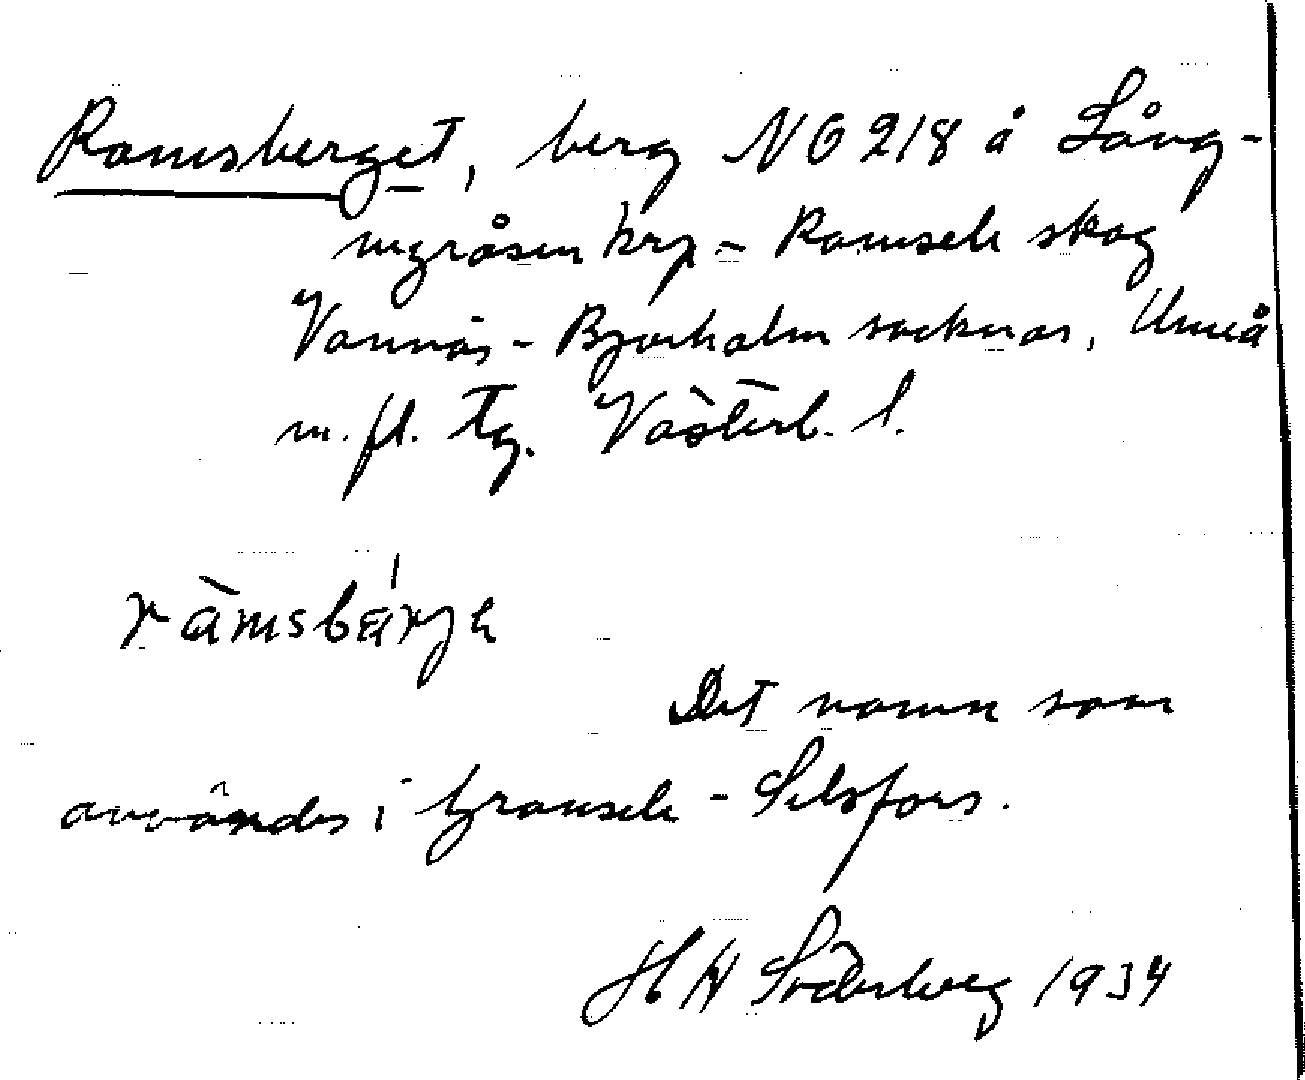 Ramsberget, berg NO 218 å Lång-
myråsen krp - Ramsele skog
Vännäs - Bjurholm socknar, Umeå
m. fl. tg. Västerb. l.
ràmsbärje
Det namn som
användes i Gransele - Selsfors.
H H Söderberg 1934